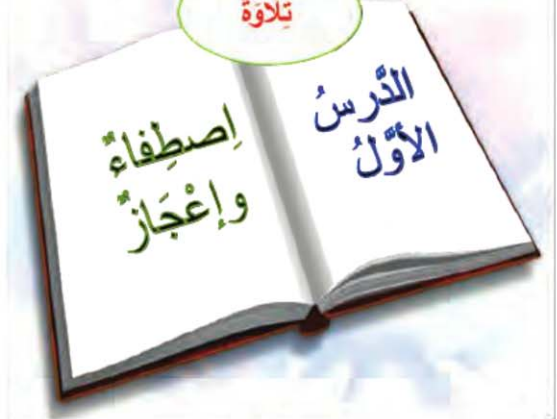 تِلاوَة
الدَّرسُ
الأوَّلُ
إِصطِفاءٌ
وإعْجَازٌ